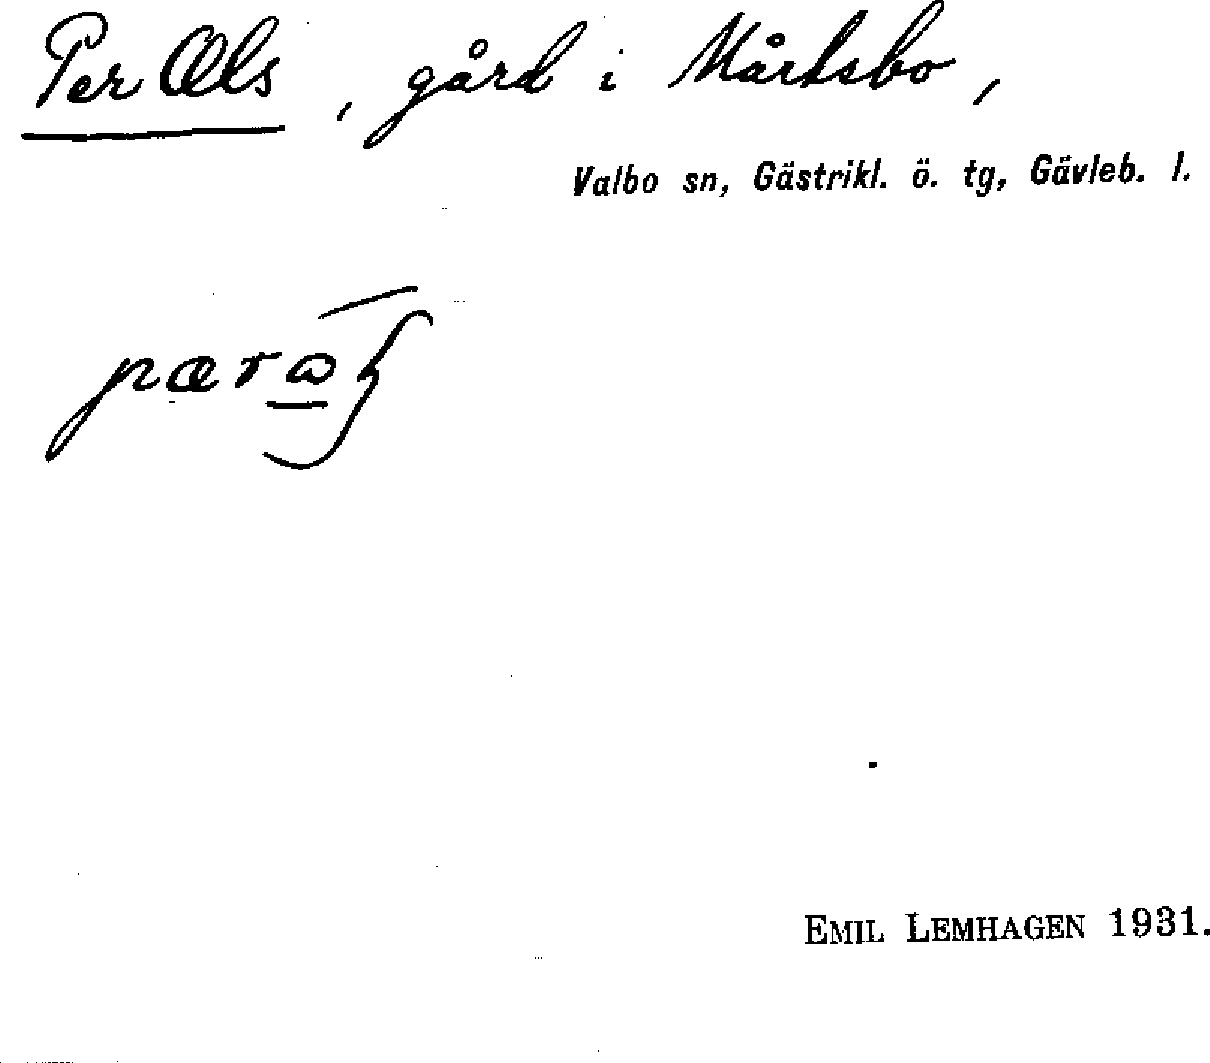 Per Ols, gård i Mårtsbo,
Valbo sn, Gästrikl. ö. tg, Gävleb. l.
EMIL LEMHAGEN 1931.